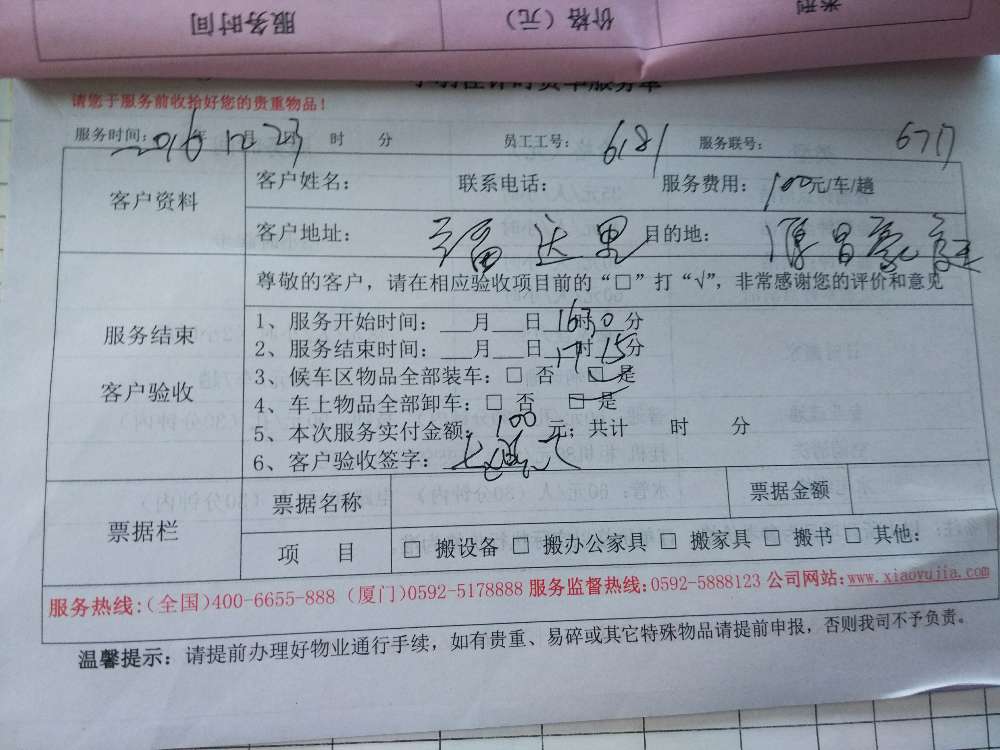 服务时间 价格（元） 类别
请您于服务前收拾好您的贵重物品！
服务时间：2016年12月23日 时 分 员工工号：6181 服务联号：
客户资料 客户姓名： 联系电话： 服务费用：100元/车/趟
客户地址：福达里 目的地：
尊敬的客户，请在相应验收项目前的“□”打“√”，非常感谢您的评价和意见
服务结束
客户验收
1、服务开始时间：___月___日16时30分
2、服务结束时间：___月___日17时15分
3、候车区物品全部装车：□ 否 □ 是
4、车上物品全部卸车：□ 否 □ 是
5、本次服务实付金额：100元；共计 时 分
6、客户验收签字：
票据栏 票据名称 票据金额
项 目 □ 搬设备 □ 搬办公家具 □ 搬家具 □ 搬书 □ 其他：
服务热线：（全国）400-6655-888（厦门）0592-5178888 服务监督热线：0592-5888123 公司网站：www.xiaoyujia.com
温馨提示：请提前办理好物业通行手续，如有贵重、易碎或其它特殊物品请提前申报，否则我司不予负责。